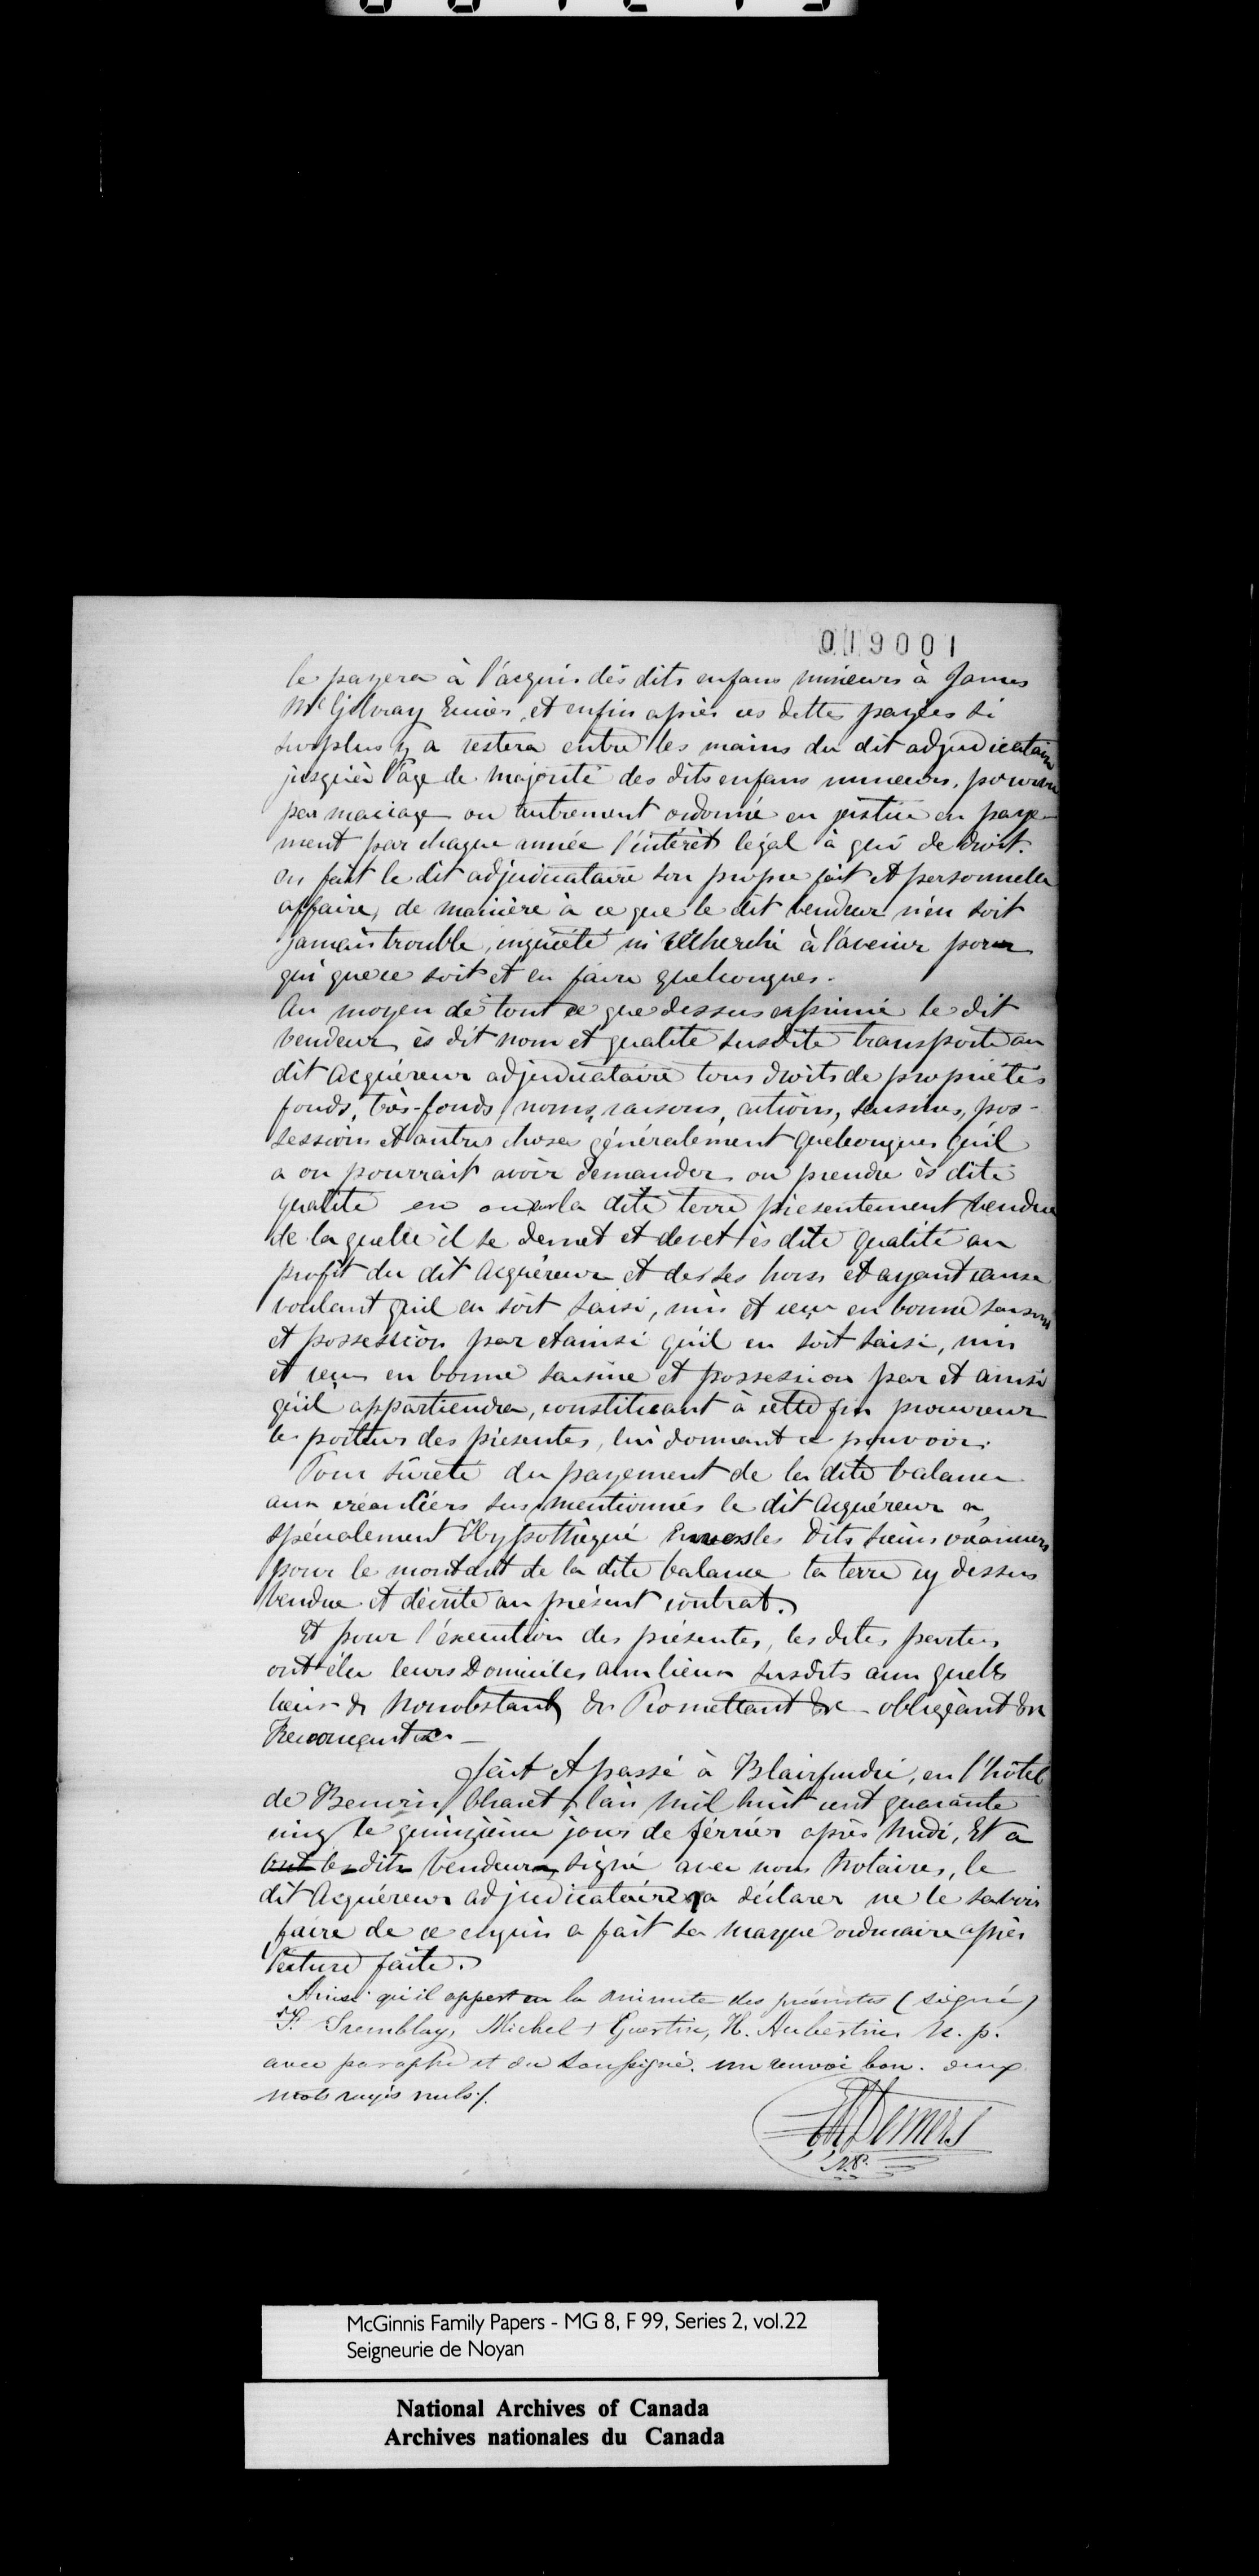 019001
le payera à l'acquis des dits enfans mineurs à James
McGilvray Ecuier, et enfin après ces dettes payées si
surplus y a restera entre les mains du dit adjudicataire
jusqu'à l'âge de majorité des dits enfans mineurs,
par mariage ou autrement ordonné en justice en paye-
ment par chaque année l'intérêt légal à qui de droit.
En fait le dit adjudicataire son propre fait et personnelle
affaire, de manière à ce que le dit vendeur n'en soit
jamais trouble, inquiété ni recherché à l'avenir pour
qui que ce soit et en faire quelconques.
Au moyen de tout ce que dessus exprimé le dit
vendeur ès dit nom et qualité susdite transporte au
dit Acquéreur adjudicataire tous droits de propriétés
fonds, très-fonds, noms, raisons, actions, saisines, pos-
sessions et autres choses généralement quelconques qu'il
a ou pourrait avoir demander ou prendre ès dite
qualité en ou sur la dite terre présentement vendue
de laquelle il se demet et devet ès dite qualité au
profit du dit Acquéreur et des ses hoirs et ayant cause
voulant qu'il en soit saisi, mis et reçu en bonne saisine
et possession par et ainsi qu'il en soit saisi, mis
et reçu en bonne saisine et possession par et ainsi
qu'il appartiendra, constituant à cette fin procureur
le porteur des présentes, lui donnant ce pouvoir.
Pour sûreté du payement de la dite balance
aux créantiers sus mentionnés le dit Acquéreur a
spécialement Hypothéqué Envers les dits sieurs créanciers
pour le montant de la dite balance la terre cy dessus
vendue et décrite au présent contrat.
Et pour l'éxecution des présentes, les dites parties
ont élu leurs Domiciles aux lieux susdits aux quels
lieux &c Nonobstant &c Promettant &c - obligeant &c
Renonçant &c -
Fait et passé à Blairfindie, en l'hôtel
de Benoni Charet, l'an mil huit cent quarante
cinq le quinzième jour de février après Midi, Et a
ont les dits Vendeurs signé avec nous Notaires, le
dit Acquéreur adjudicataire a déclarer ne le savoir
faire de ce enquis a fait sa marque ordinaire après
lecture faite.
Ainsi qu'il appert en la minute des présentes (signé)
F. Tremblay, Michel + Guertin, H. Aubertin N. p.
avec paraphe et du Soussigné. un renvoi bon. deux
mots rayés nuls /.
Demers
N.P.
McGinnis Family Papers - MG 8, F 99, Series 2, vol.22
Seigneurie de Noyan
National Archives of Canada
Archives nationales du Canada